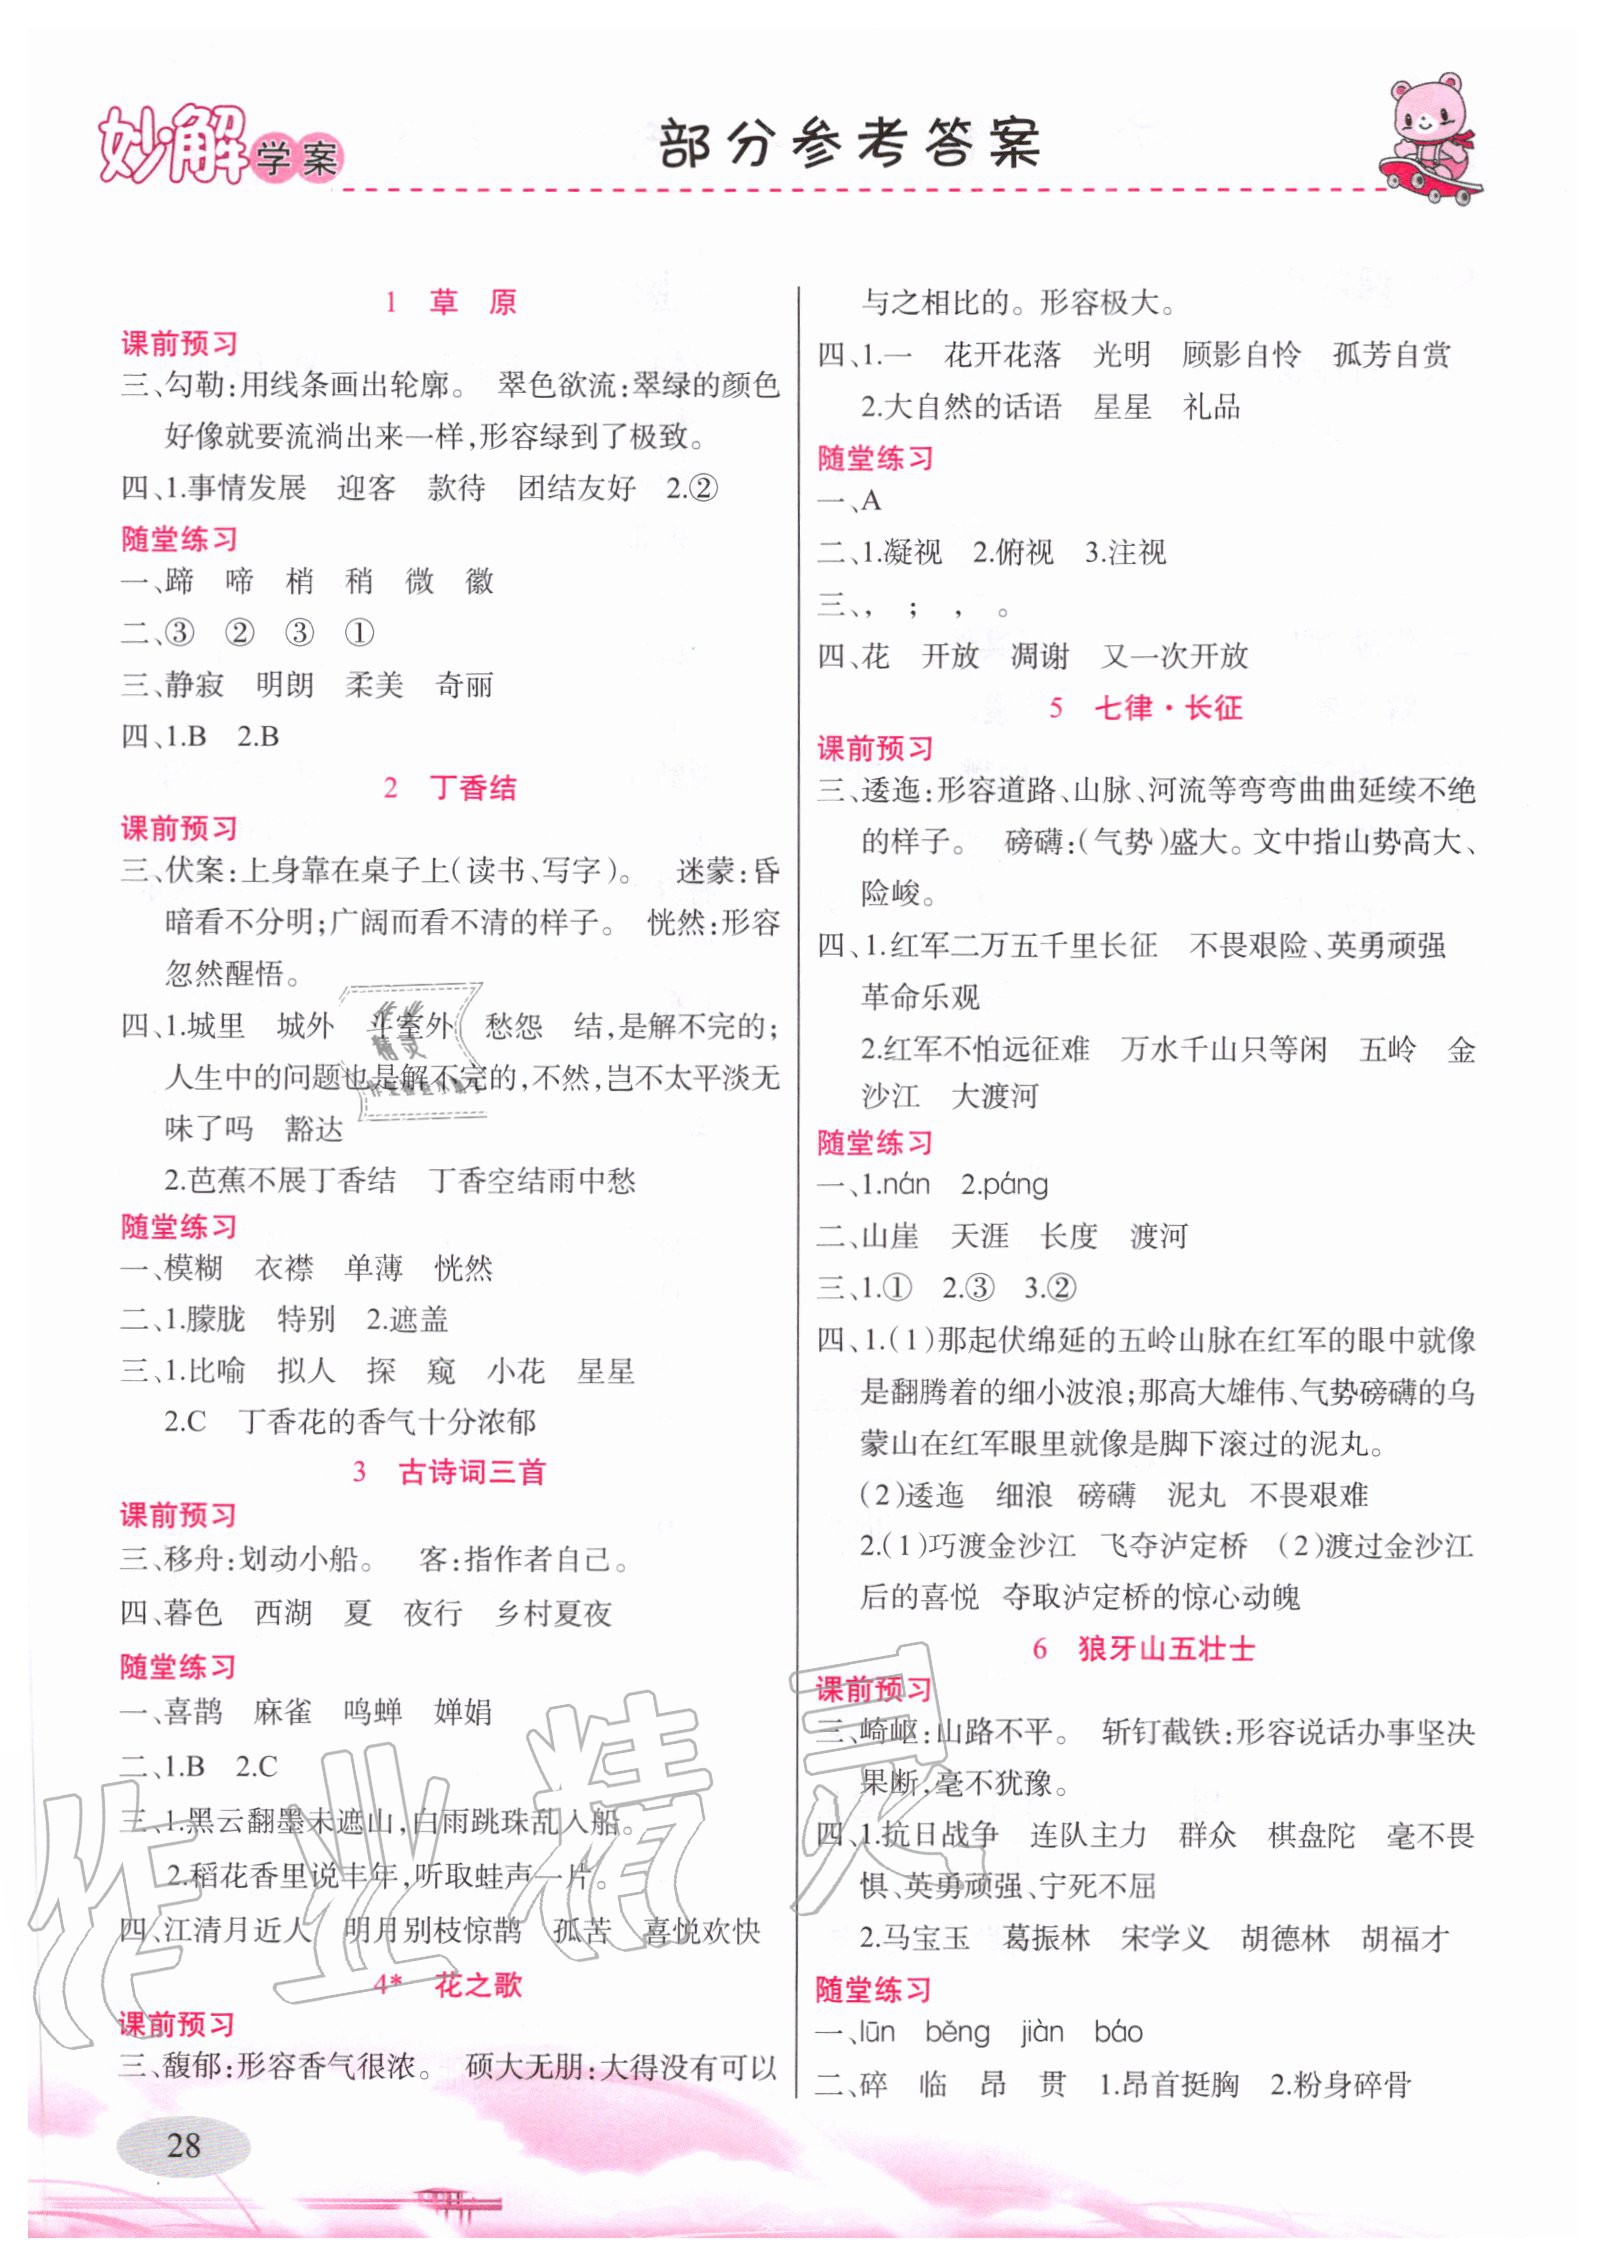 妙解学案
部分参考答案
1 草 原
课前预习
三、勾勒:用线条画出轮廓。 翠色欲流:翠绿的颜色
好像就要流淌出来一样,形容绿到了极致。
四、1.事情发展 迎客 款待 团结友好 2.②
随堂练习
一、蹄 啼 梢 稍 微 徽
二、③ ② ③ ①
三、静寂 明朗 柔美 奇丽
四、1.B 2.B
2 丁香结
课前预习
三、伏案:上身靠在桌子上(读书、写字)。 迷蒙:昏
暗看不分明;广阔而看不清的样子。 恍然:形容
忽然醒悟。
四、1.城里 城外 斗室外 愁怨 结,是解不完的;
人生中的问题也是解不完的,不然,岂不太平淡无
味了吗 豁达
2.芭蕉不展丁香结 丁香空结雨中愁
随堂练习
一、模糊 衣襟 单薄 恍然
二、1.朦胧 特别 2.遮盖
三、1.比喻 拟人 探 窥 小花 星星
2.C 丁香花的香气十分浓郁
3 古诗词三首
课前预习
三、移舟:划动小船。 客:指作者自己。
四、暮色 西湖 夏 夜行 乡村夏夜
随堂练习
一、喜鹊 麻雀 鸣蝉 婵娟
二、1.B 2.C
三、1.黑云翻墨未遮山,白雨跳珠乱入船。
2.稻花香里说丰年,听取蛙声一片。
四、江清月近人 明月别枝惊鹊 孤苦 喜悦欢快
4* 花之歌
课前预习
三、馥郁:形容香气很浓。 硕大无朋:大得没有可以
28
与之相比的。形容极大。
四、1.一 花开花落 光明 顾影自怜 孤芳自赏
2.大自然的话语 星星 礼品
随堂练习
一、A
二、1.凝视 2.俯视 3.注视
三、, ; , 。
四、花 开放 凋谢 又一次开放
5 七律·长征
课前预习
三、逶迤:形容道路、山脉、河流等弯弯曲曲延续不绝
的样子。 磅礴:(气势)盛大。文中指山势高大、
险峻。
四、1.红军二万五千里长征 不畏艰险、英勇顽强
革命乐观
2.红军不怕远征难 万水千山只等闲 五岭 金
沙江 大渡河
随堂练习
一、1.nán 2.páng
二、山崖 天涯 长度 渡河
三、1.① 2.③ 3.②
四、1.(1)那起伏绵延的五岭山脉在红军的眼中就像
是翻腾着的细小波浪;那高大雄伟、气势磅礴的乌
蒙山在红军眼里就像是脚下滚过的泥丸。
(2)逶迤 细浪 磅礴 泥丸 不畏艰难
2.(1)巧渡金沙江 飞夺泸定桥 (2)渡过金沙江
后的喜悦 夺取泸定桥的惊心动魄
6 狼牙山五壮士
课前预习
三、崎岖:山路不平。 斩钉截铁:形容说话办事坚决
果断,毫不犹豫。
四、1.抗日战争 连队主力 群众 棋盘陀 毫不畏
惧、英勇顽强、宁死不屈
2.马宝玉 葛振林 宋学义 胡德林 胡福才
随堂练习
一、lūn běng jiàn báo
二、碎 临 昂 贯 1.昂首挺胸 2.粉身碎骨
作业精灵
作业精灵